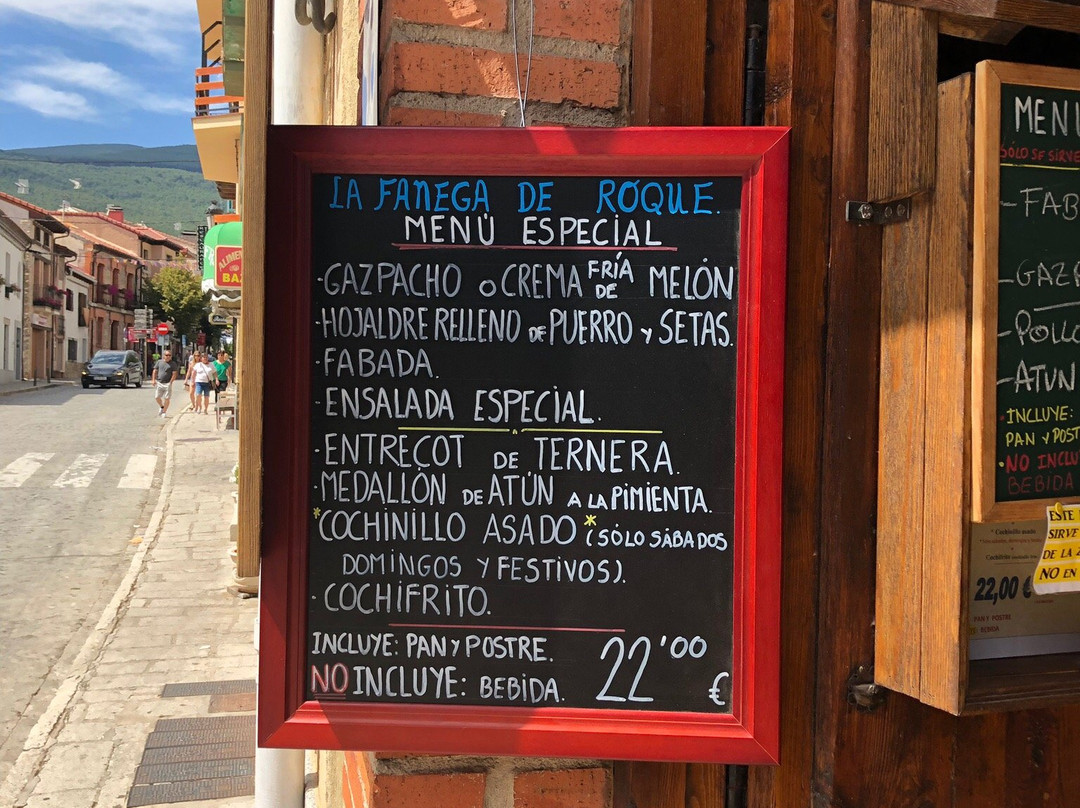 LA FANEGA DE ROQUE.
MENÚ ESPECIAL
·GAZPACHO o CREMA FRÍA DE MELÓN
·HOJALDRE RELLENO DE PUERRO Y SETAS.
·FABADA.
·ENSALADA ESPECIAL.
·ENTRECOT DE TERNERA.
·MEDALLÓN DE ATÚN A LA PIMIENTA.
*COCHINILLO ASADO* (SÓLO SÁBADOS
DOMINGOS Y FESTIVOS).
·COCHIFRITO.
INCLUYE: PAN Y POSTRE.
NO INCLUYE: BEBIDA.
22'00 €
SÓLO SE SIRVE
-GAZP
-ATÚN
·INCLUYE:
PAN Y POST
·NO INCLU
BEBIDA
ESTE
SIRVE
DE LA
NO EN
22,00 €
PAN Y POSTRE
BEBIDA